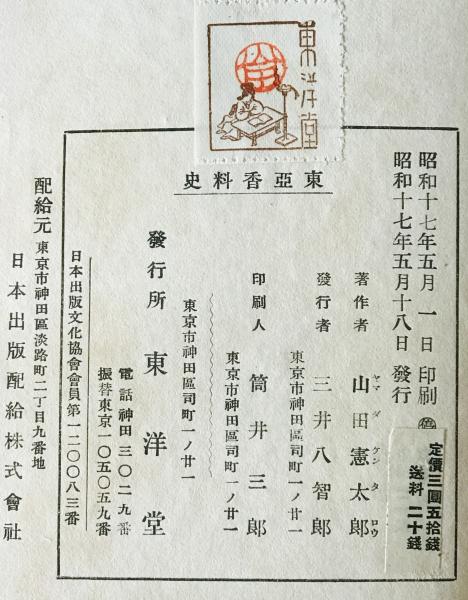 東洋堂
東亞香料史
昭和十七年五月一日印刷
昭和十七年五月十八日發行
定價三圓五拾錢
送料二十錢
著作者 山田憲太郎
ヤマダケンタロウ
發行者 三井八智郎
東京市神田區司町一ノ廿一
印刷人 筒井三郎
東京市神田區司町一ノ廿一
東京市神田區司町一ノ廿一
發行所 東洋堂
電話神田三〇二九番
振替東京一〇五〇五九番
日本出版文化協會會員第一二〇〇八三番
配給元 東京市神田區淡路町二丁目九番地
日本出版配給株式會社